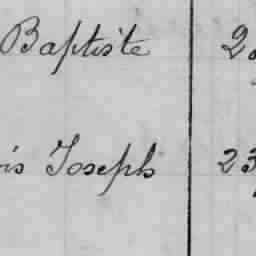 Baptiste
is Joseph 23